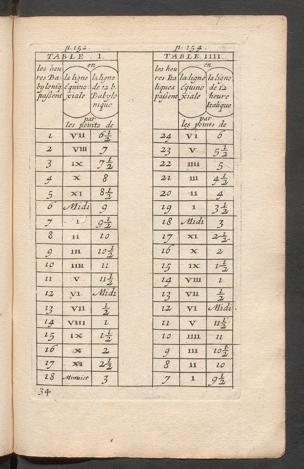 p. 152.
TABLE I.
les heu res Ba bylonīq. passent
en la ligne équino xiale
la ligne de 12 h. Babylo nique
par les points de
1 VII 6½
2 VIII 7
3 IX 7½
4 X 8
5 XI 8½
6 Midi 9
7 I 9½
8 II 10
9 III 10½
10 IIII 11
11 V 11½
12 VI Midi
13 VII ½
14 VIII 1
15 IX 1½
16 X 2
17 XI 2½
18 Minuict 3
34
p. 154.
TABLE IIII.
les heu res Ita liques passent
en la ligne équino xiale
la ligne de 12 heure Italique
par les points de
24 VI 6
23 V 5½
22 IIII 5
21 III 4½
20 II 4
19 I 3½
18 Midi 3
17 XI 2½
16 X 2
15 IX 1½
14 VIII 1
13 VII ½
12 VI Midi
11 V 11½
10 IIII 11
9 III 10½
8 II 10
7 I 9½